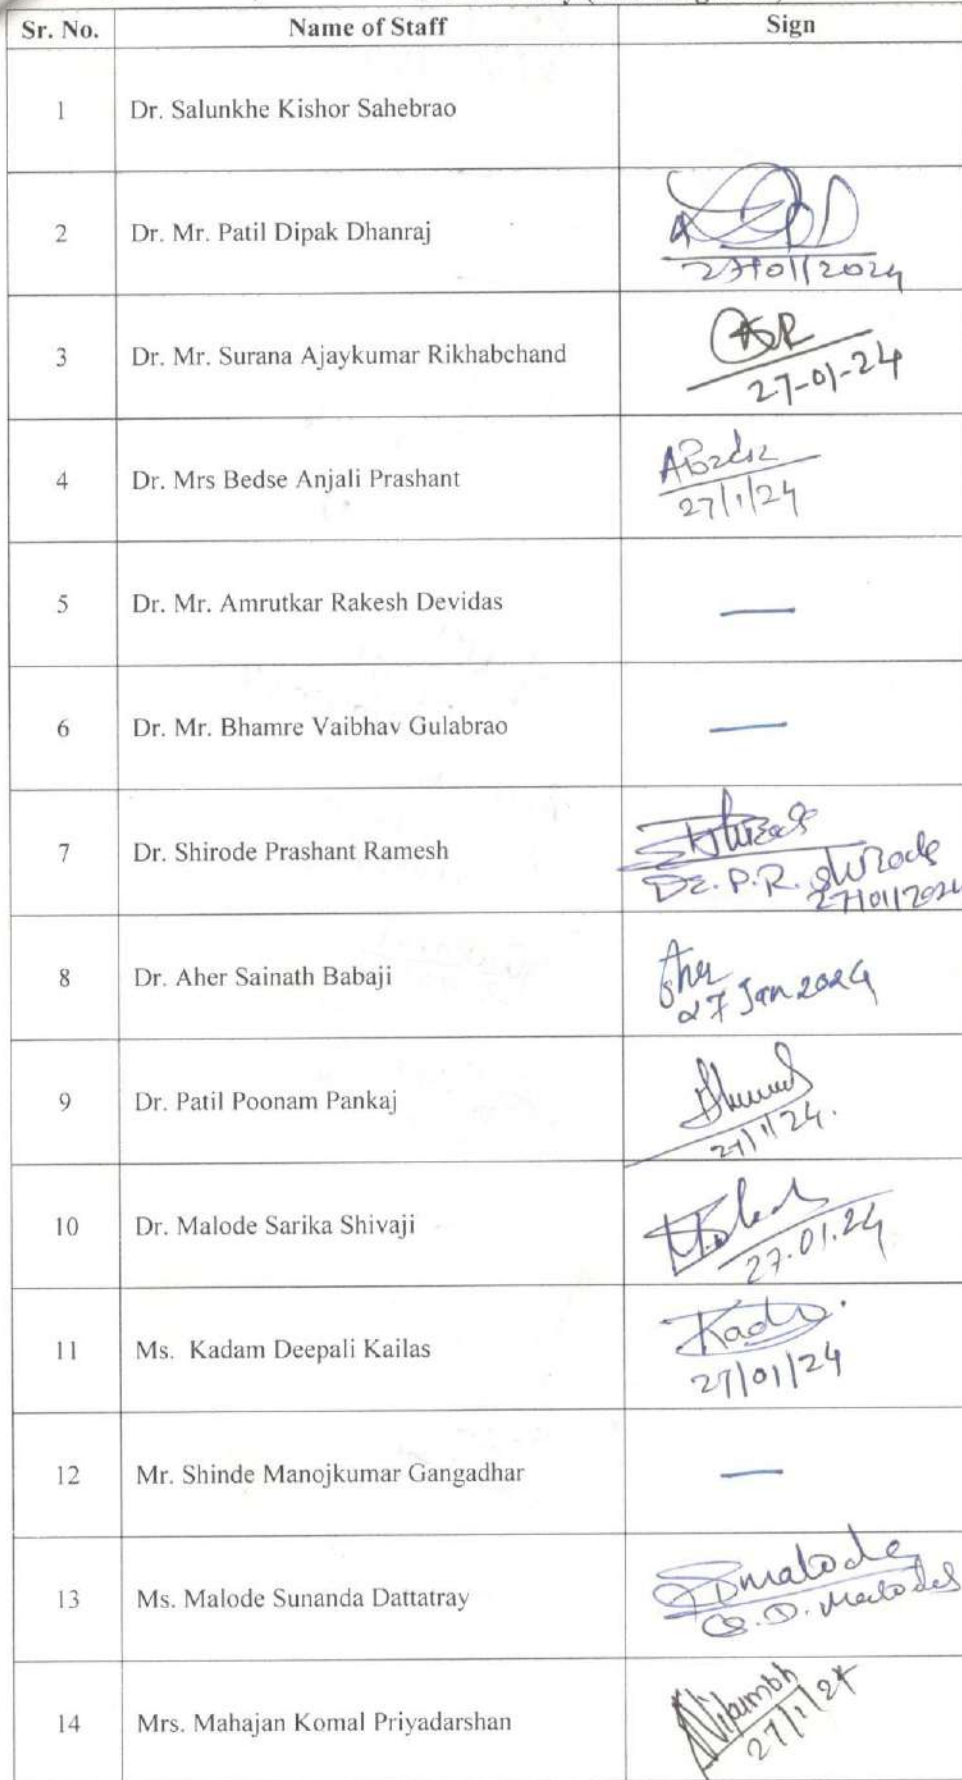 Sr. No. Name of Staff Sign
1 Dr. Salunkhe Kishor Sahebrao
2 Dr. Mr. Patil Dipak Dhanraj
27/01/2024
3 Dr. Mr. Surana Ajaykumar Rikhabchand
27-01-24
4 Dr. Mrs Bedse Anjali Prashant
27/1/24
5 Dr. Mr. Amrutkar Rakesh Devidas —
6 Dr. Mr. Bhamre Vaibhav Gulabrao —
7 Dr. Shirode Prashant Ramesh
Dr. P.R. Shirode
27/01/2024
8 Dr. Aher Sainath Babaji Aher
27 Jan 2024
9 Dr. Patil Poonam Pankaj
27/1/24.
10 Dr. Malode Sarika Shivaji
27.01.24
11 Ms. Kadam Deepali Kailas
27/01/24
12 Mr. Shinde Manojkumar Gangadhar —
13 Ms. Malode Sunanda Dattatray SDmalode
S.D. Malode
14 Mrs. Mahajan Komal Priyadarshan
27/1/24